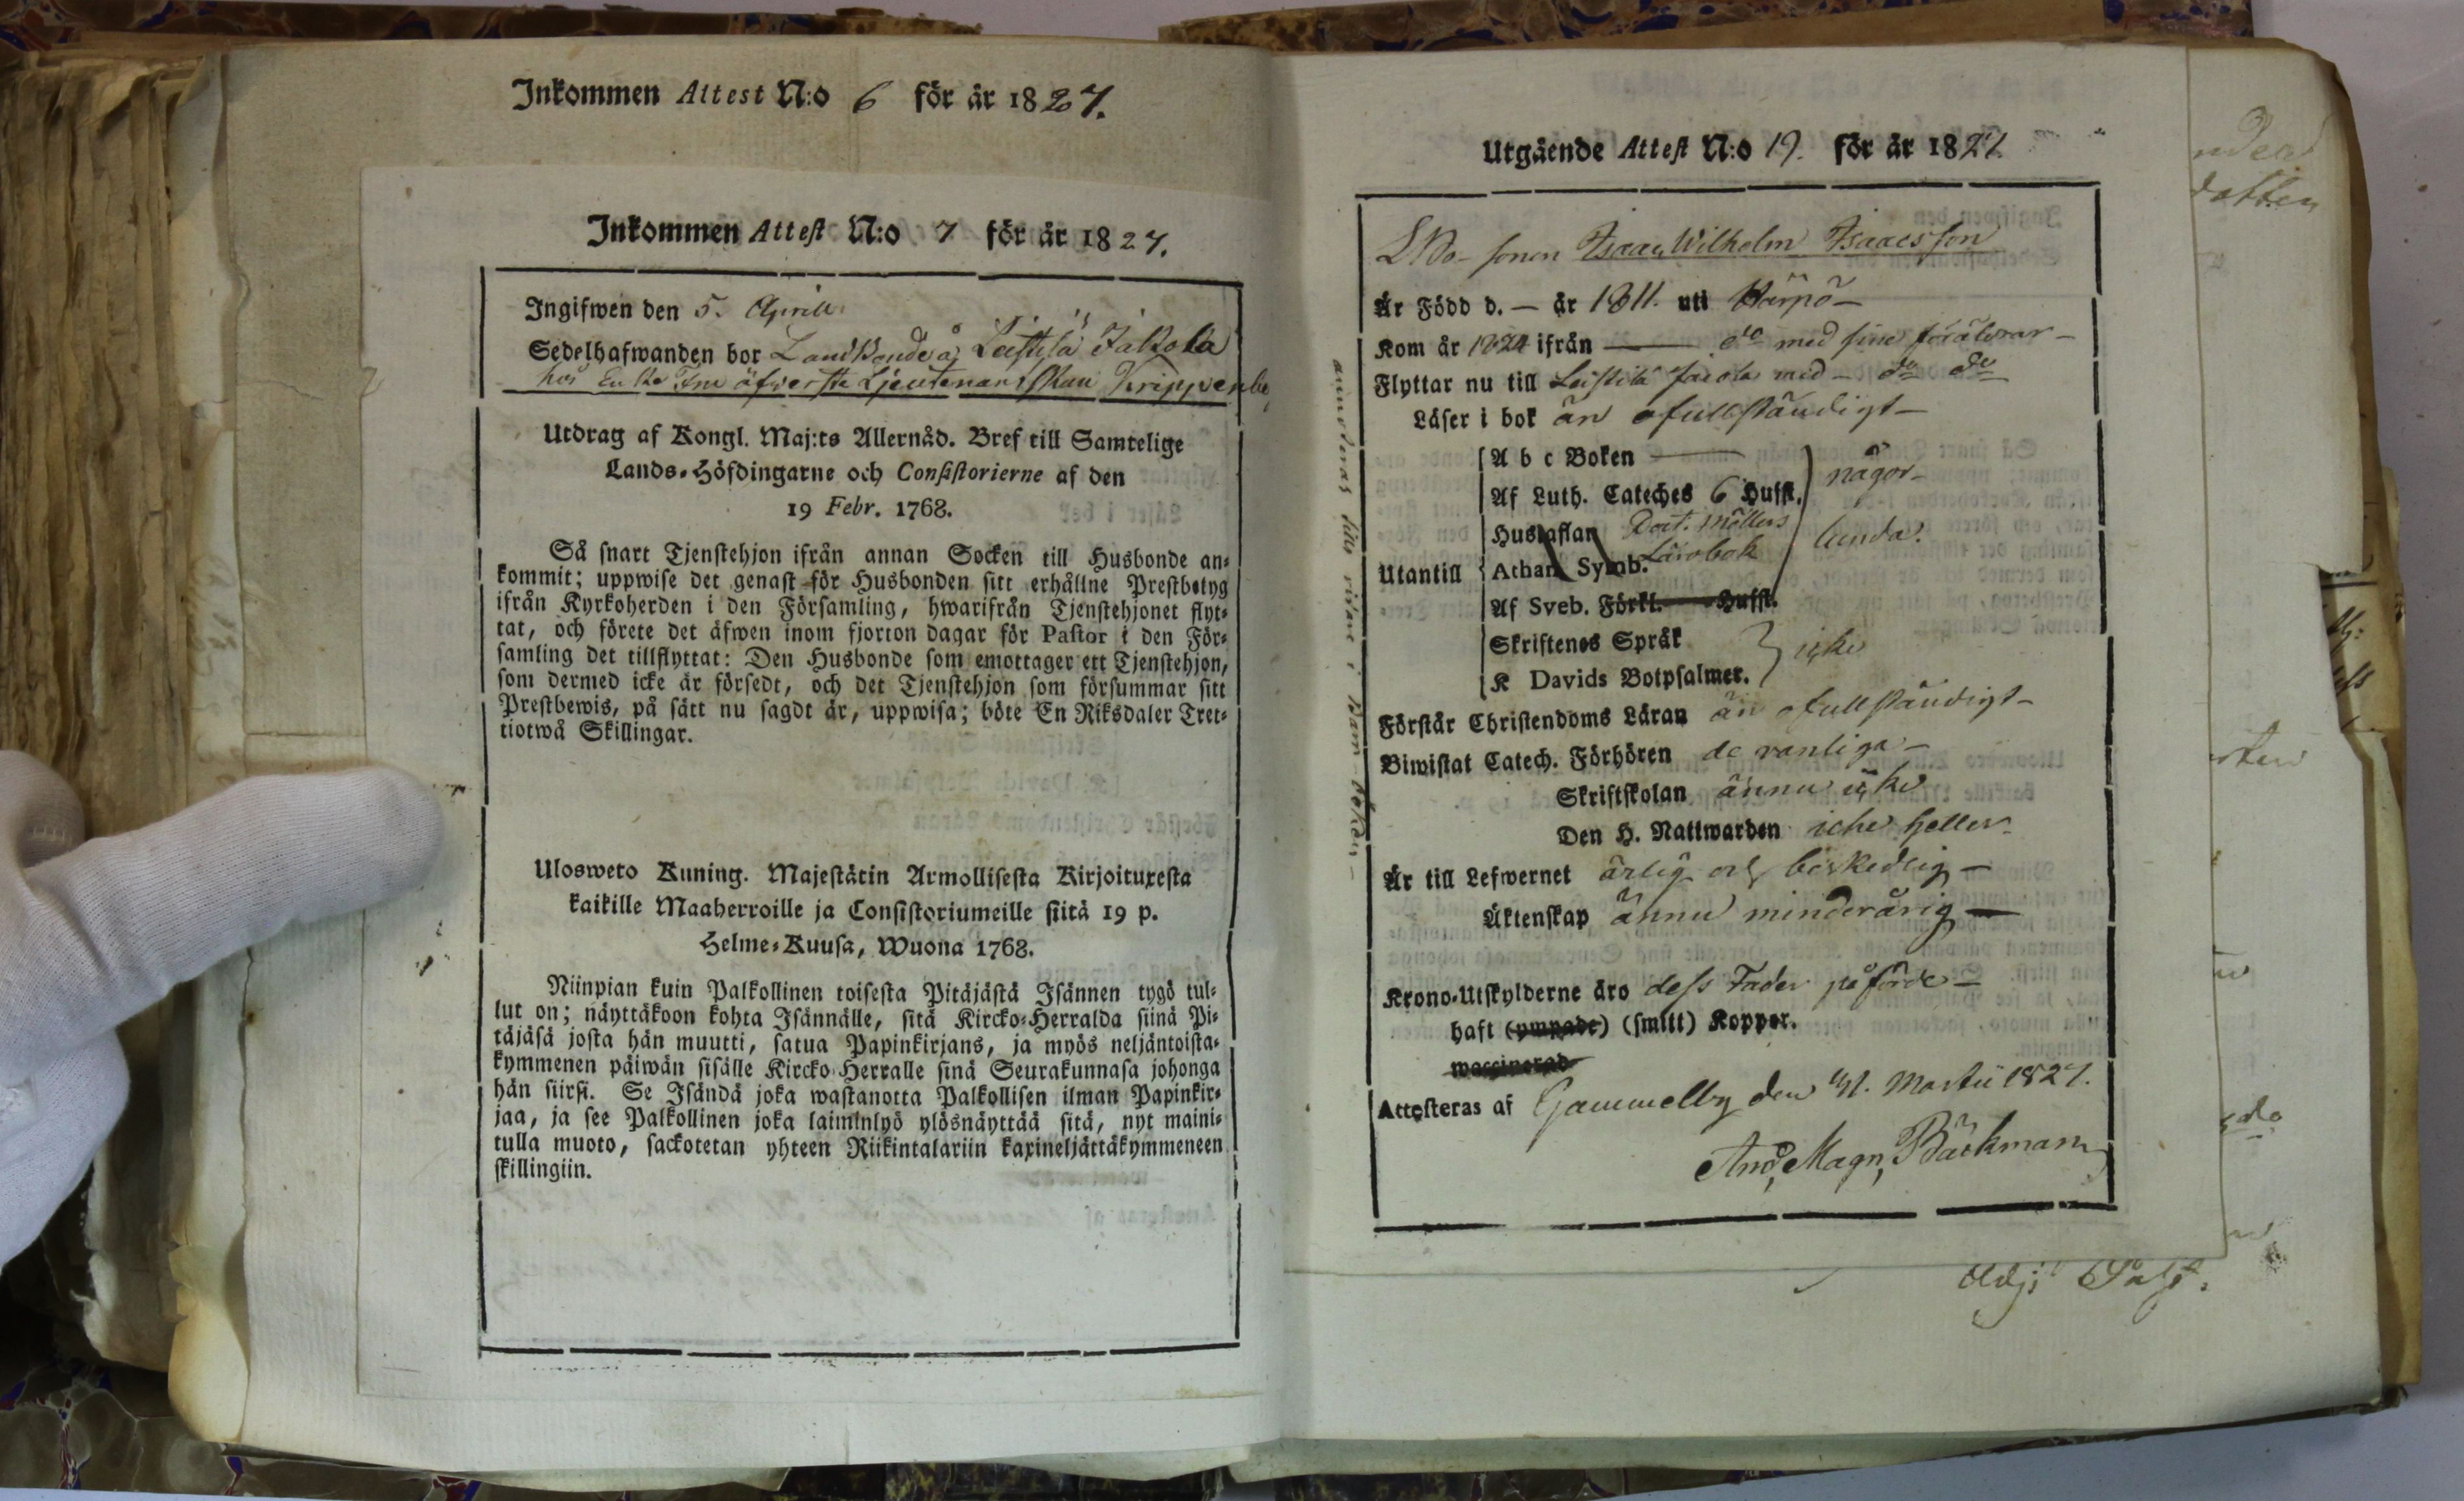 Inkommen Attest N:o 6 för år 1827.
Inkommen Attest N:o 7 för år 1827.
Ingifwen den 5. Aprill
Sedelhafwanden bor Landbonde å Leistilä Jakola
hos Enke Fru öfwerste Ljeutenanskan
Utdrag af Kongl. Maj:ts Allernåd. Bref till Samtelige
Lands-Höfdingarne och Consistorierne af den
19 Febr. 1768.
Så snart Tjenstehjon ifrån annan Socken till Husbonde an-
kommit; uppwise det genast för Husbonden sitt erhållne Prestbetyg
ifrån Kyrkoherden i den Församling, hwarifrån Tjenstehjonet flyt-
tat, och förete det äfwen inom fjorton dagar för Pastor i den För-
samling det tillflyttat: Den Husbonde som emottager ett Tjenstehjon,
som dermed icke är försedt, och det Tjenstehjon som försummar sitt
Prestbewis, på sätt nu sagdt är, uppwisa; böte En Riksdaler Tret-
tiotwå Skillingar.
Ulosweto Kuning. Majestätin Armollisesta Kirjoituxesta
kaikille Maaherroille ja Consistoriumeille siitä 19 p.
Helme-Kuusa, Wuona 1768.
Niinpian kuin Palkollinen toisesta Pitäjästä Isännen tygö tul-
lut on; näyttäkoon kohta Isännälle, sitä Kircko-Herralda siinä Pi-
täjäsä josta hän muutti, satua Papinkirjans, ja myös neljäntoista-
kymmenen päiwän sisälle Kircko Herralle sinä Seurakunnasa johonga
hän siirsi. Se Isändä joka wastanotta Palkollisen ilman Papinkir-
jaa, ja see Palkollinen joka laiminlyö ylösnäyttää sitä, nyt maini-
tulla muoto, sackotetan yhteen Riikintalariin kaxineljättäkymmeneen
skillingiin.
Utgående Attest N:o 19. för år 1827
LBo- sonen Isaac Wilhelm Isaacsson
Är Född d. — år 1811. uti
Kom år 1824 ifrån — do med sine föräldrar —
Flyttar nu till Leistilä Jacola med — do do
Läser i bok än ofullständigt —
A b c Boken —
Af Luth. Cateches 6 Hufst. någor-
Hustaflan Doct. Möllers lunda.
Utantill Athan Symb. Lärobok
Af Sveb. Förkl. Hufst.
Skriftenes Språk icke
K Davids Botpsalmer.
Förstår Christendoms Läran än ofullständigt —
Biwistat Catech. Förhören de vanliga —
Skriftskolan ännu icke
Den H. Nattwarden icke heller
Är till Lefwernet ärlig och beskedlig —
Äktenskap ännu minderårig —
Krono-Utskylderne äro dess Fader påförde —
haft (ympade) (smitt) Koppor.
waccinerad
Attesteras af Gammelby den 31. Martii 1827.
And. Magn. Bäckman
Adj: Past.